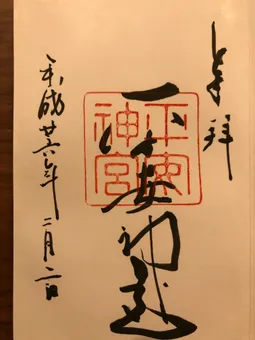 奉拝
平安神宮
平安
神宮
平成廿六年 二月二日